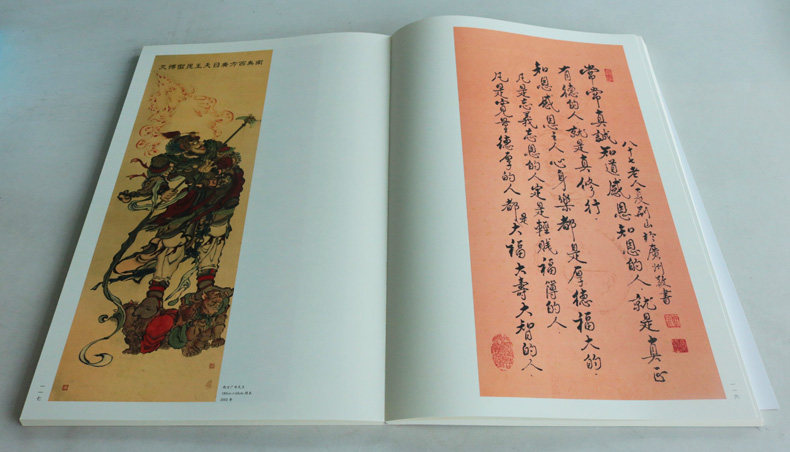 南無西方廣目天王毘留博叉
西方广目天王
2002 年
一一七
常常真誠知道感恩知恩的人.就是真正
有德的人就是真修行.
知恩感恩之人心身樂都是厚德福大的.
凡是忘義忘恩的人定是輕賤福薄的人.
凡是寬量德厚的人都是大福大壽大智的人.
八十七老人夏荊山於廣州敬書
一一六